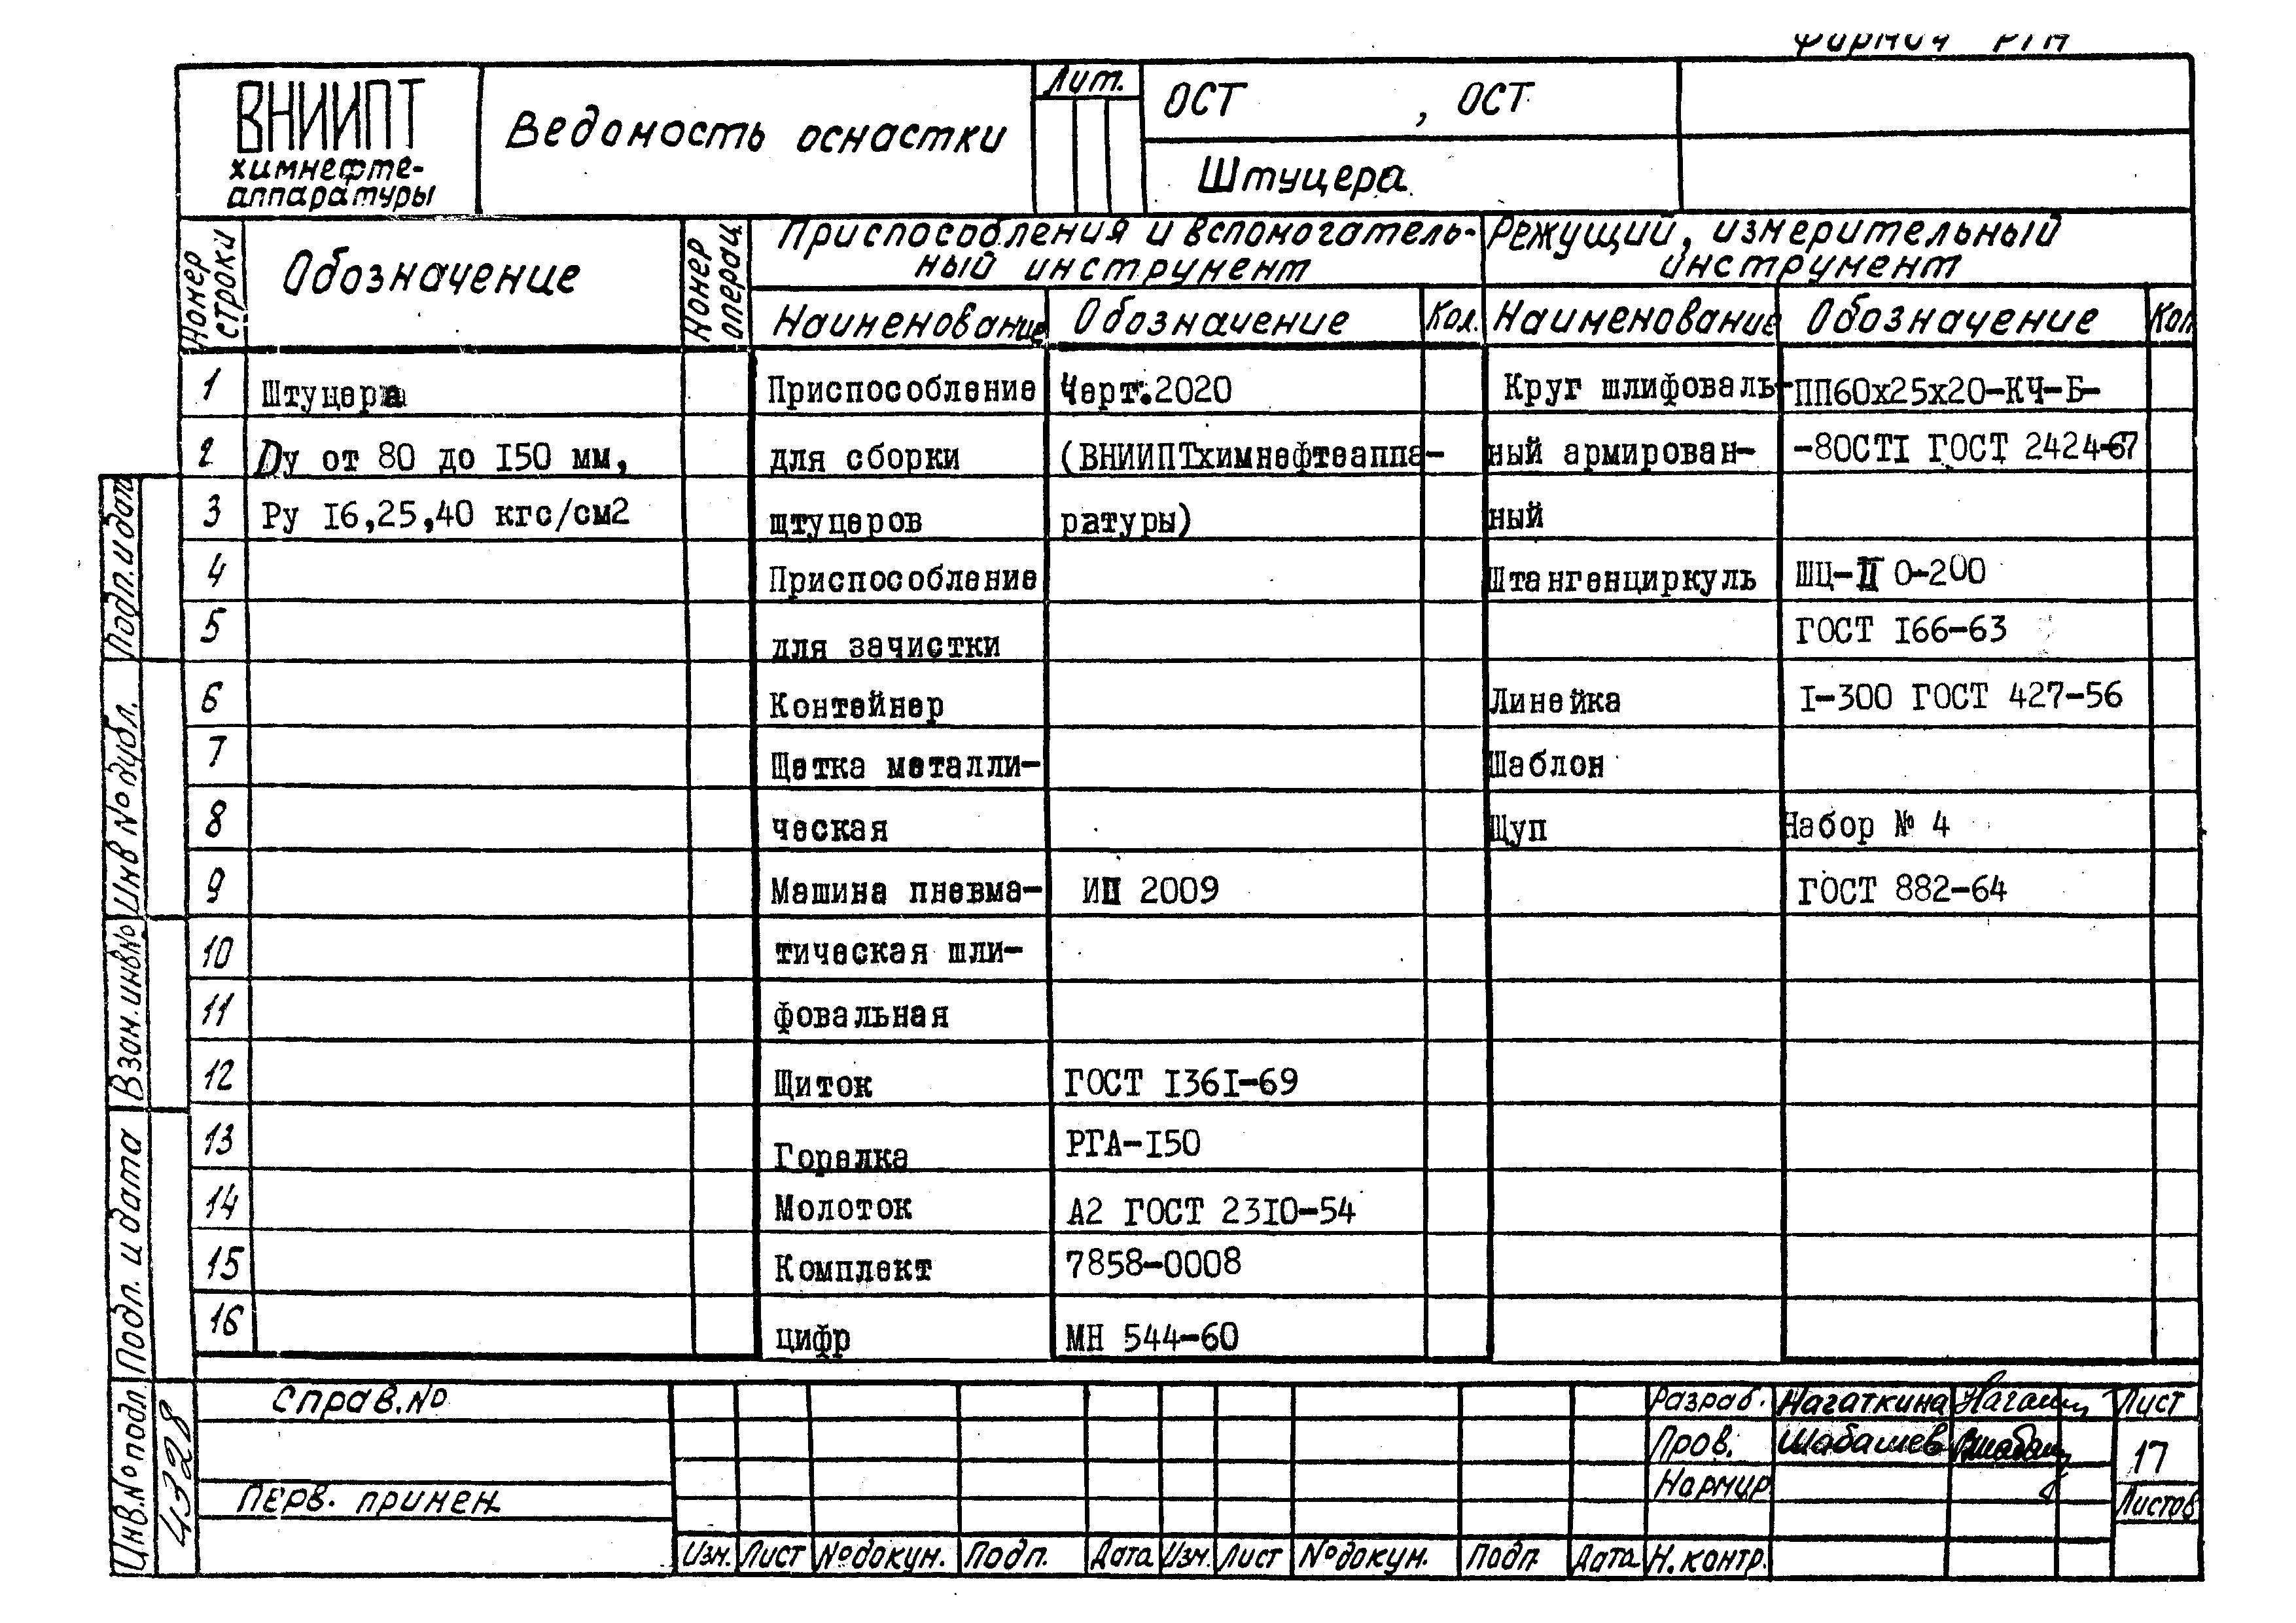 ВНИИПТ
химнефте-
аппаратуры
Ведомость оснастки
Лит.
ОСТ , ОСТ
Штуцера
Номер строки
Обозначение
Номер операц.
Приспособления и вспомогатель-
ный инструмент
Режущий, измерительный
инструмент
Наименование Обозначение Кол. Наименование Обозначение Кол.
1 Штуцера Приспособление Черт.2020 Круг шлифоваль- ПП60х25х20-КЧ-Б-
2 Dу от 80 до I50 мм, для сборки (ВНИИПТхимнефтеаппа- ный армирован- -80СТI ГОСТ 2424-67
3 Ру I6,25,40 кгс/см2 штуцеров ратуры) ный
4 Приспособление Штангенциркуль ШЦ-II 0-200
5 для зачистки ГОСТ I66-63
6 Контейнер Линейка I-300 ГОСТ 427-56
7 Щетка металли- Шаблон
8 ческая Щуп Набор № 4
9 Машина пневма- ИП 2009 ГОСТ 882-64
10 тическая шли-
11 фовальная
12 Щиток ГОСТ I36I-69
13 Горелка РГА-I50
14 Молоток А2 ГОСТ 23I0-54
15 Комплект 7858-0008
16 цифр МН 544-60
Подп. и дата
Инв № дубл.
Взам. инв №
Подп. и дата
Инв. № подл.
4328
Справ. №
Перв. примен.
Разраб. Нагаткина Лист
Пров. Шабашев 17
Нормир.
Листов
Изм. Лист № докум. Подп. Дата Изм. Лист № докум. Подп Дата Н. контр.